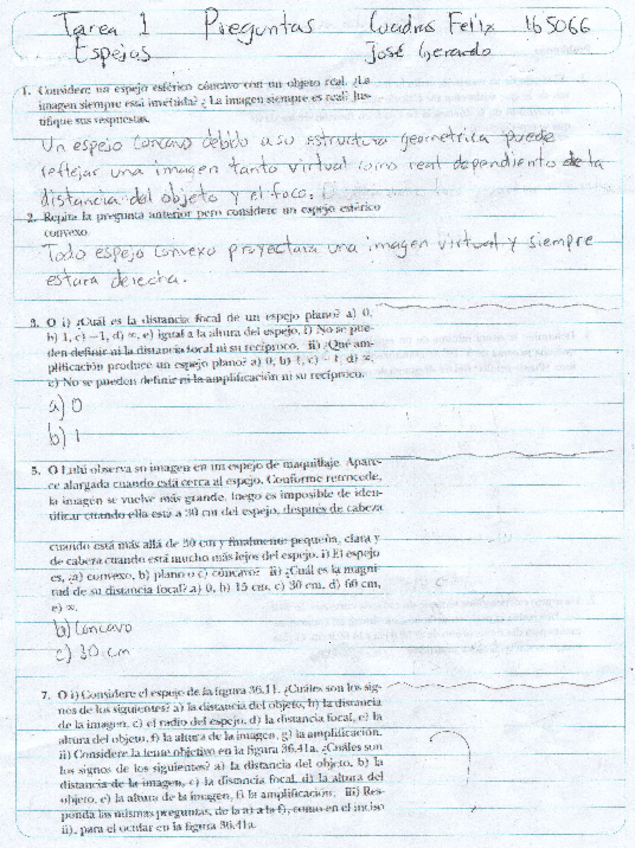 Tarea 1 Preguntas Cuadras Felix 165066
Espejos José Gerardo
1. Considere un espejo esférico cóncavo con un objeto real. ¿La
imagen siempre está invertida? ¿La imagen siempre es real? Jus-
tifique sus respuestas.
Un espejo Concavo debido a su estructura geometrica puede
reflejar una imagen tanto virtual como real dependiento de la
distancia del objeto y el foco.
2. Repita la pregunta anterior pero considere un espejo esférico
convexo.
Todo espejo convexo proyectara una imagen virtual y siempre
estara derecha.
3. O i) ¿Cuál es la distancia focal de un espejo plano? a) 0,
b) 1, c) −1, d) ∞, e) igual a la altura del espejo, f) No se pue-
den definir ni la distancia focal ni su recíproco. ii) ¿Qué am-
plificación produce un espejo plano? a) 0, b) 1, c) −1, d) ∞,
e) No se pueden definir ni la amplificación ni su recíproco.
a) 0
b) 1
5. O Lulú observa su imagen en un espejo de maquillaje. Apare-
ce alargada cuando está cerca al espejo. Conforme retrocede,
la imagen se vuelve más grande, luego es imposible de iden-
tificar cuando ella está a 30 cm del espejo, después de cabeza
cuando está más allá de 30 cm y finalmente pequeña, clara y
de cabeza cuando está mucho más lejos del espejo. i) El espejo
es, ¿a) convexo, b) plano o c) cóncavo? ii) ¿Cuál es la magni-
tud de su distancia focal? a) 0, b) 15 cm, c) 30 cm, d) 60 cm,
e) ∞.
b) Concavo
c) 30 cm
7. O i) Considere el espejo de la figura 36.11. ¿Cuáles son los sig-
nos de los siguientes? a) la distancia del objeto, b) la distancia
de la imagen, c) el radio del espejo, d) la distancia focal, e) la
altura del objeto, f) la altura de la imagen, g) la amplificación.
ii) Considere la lente objetivo en la figura 36.41a. ¿Cuáles son
los signos de los siguientes? a) la distancia del objeto, b) la
distancia de la imagen, c) la distancia focal, d) la altura del
objeto, e) la altura de la imagen, f) la amplificación. iii) Res-
ponda las mismas preguntas, de la a) a la f), como en el inciso
ii), para el ocular en la figura 36.41a.